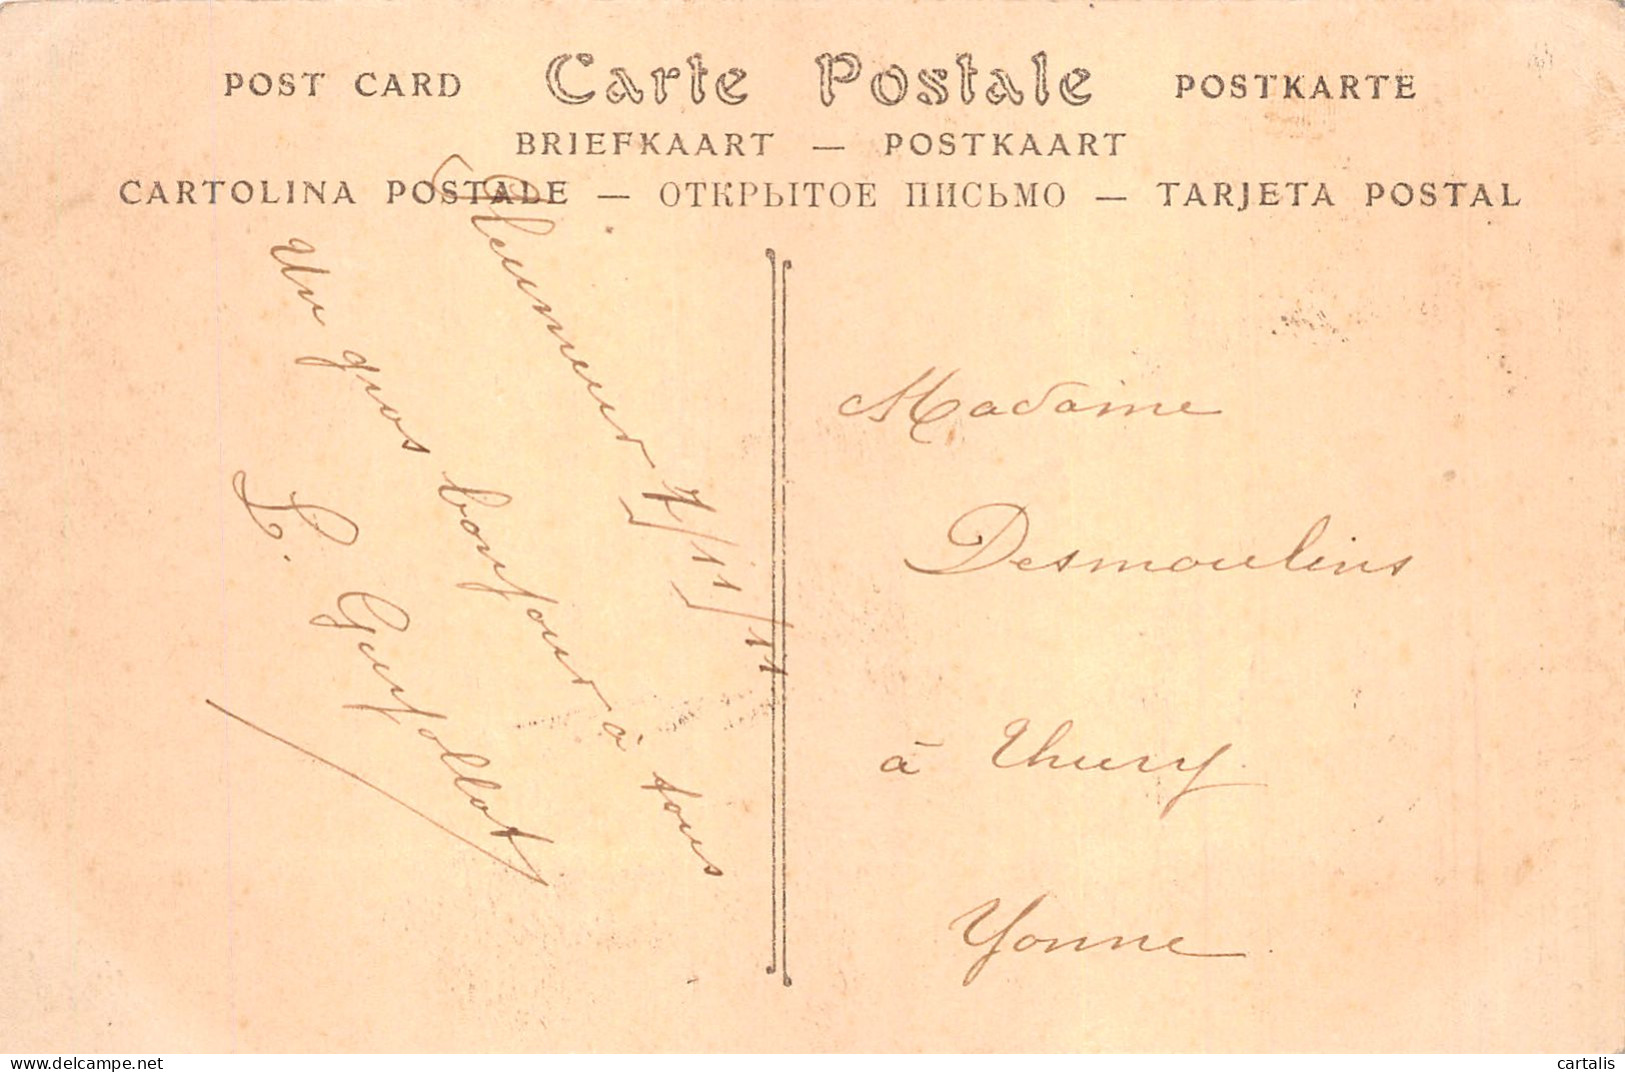 POST CARD Carte Postale POSTKARTE
BRIEFKAART — POSTKAART
CARTOLINA POSTALE — ОТКРЫТОЕ ПИСЬМО — TARJETA POSTAL
7/11/11
Un gros bonjour à tous
L.
Madame
Desmoulins
à Thury
Yonne
cartalis